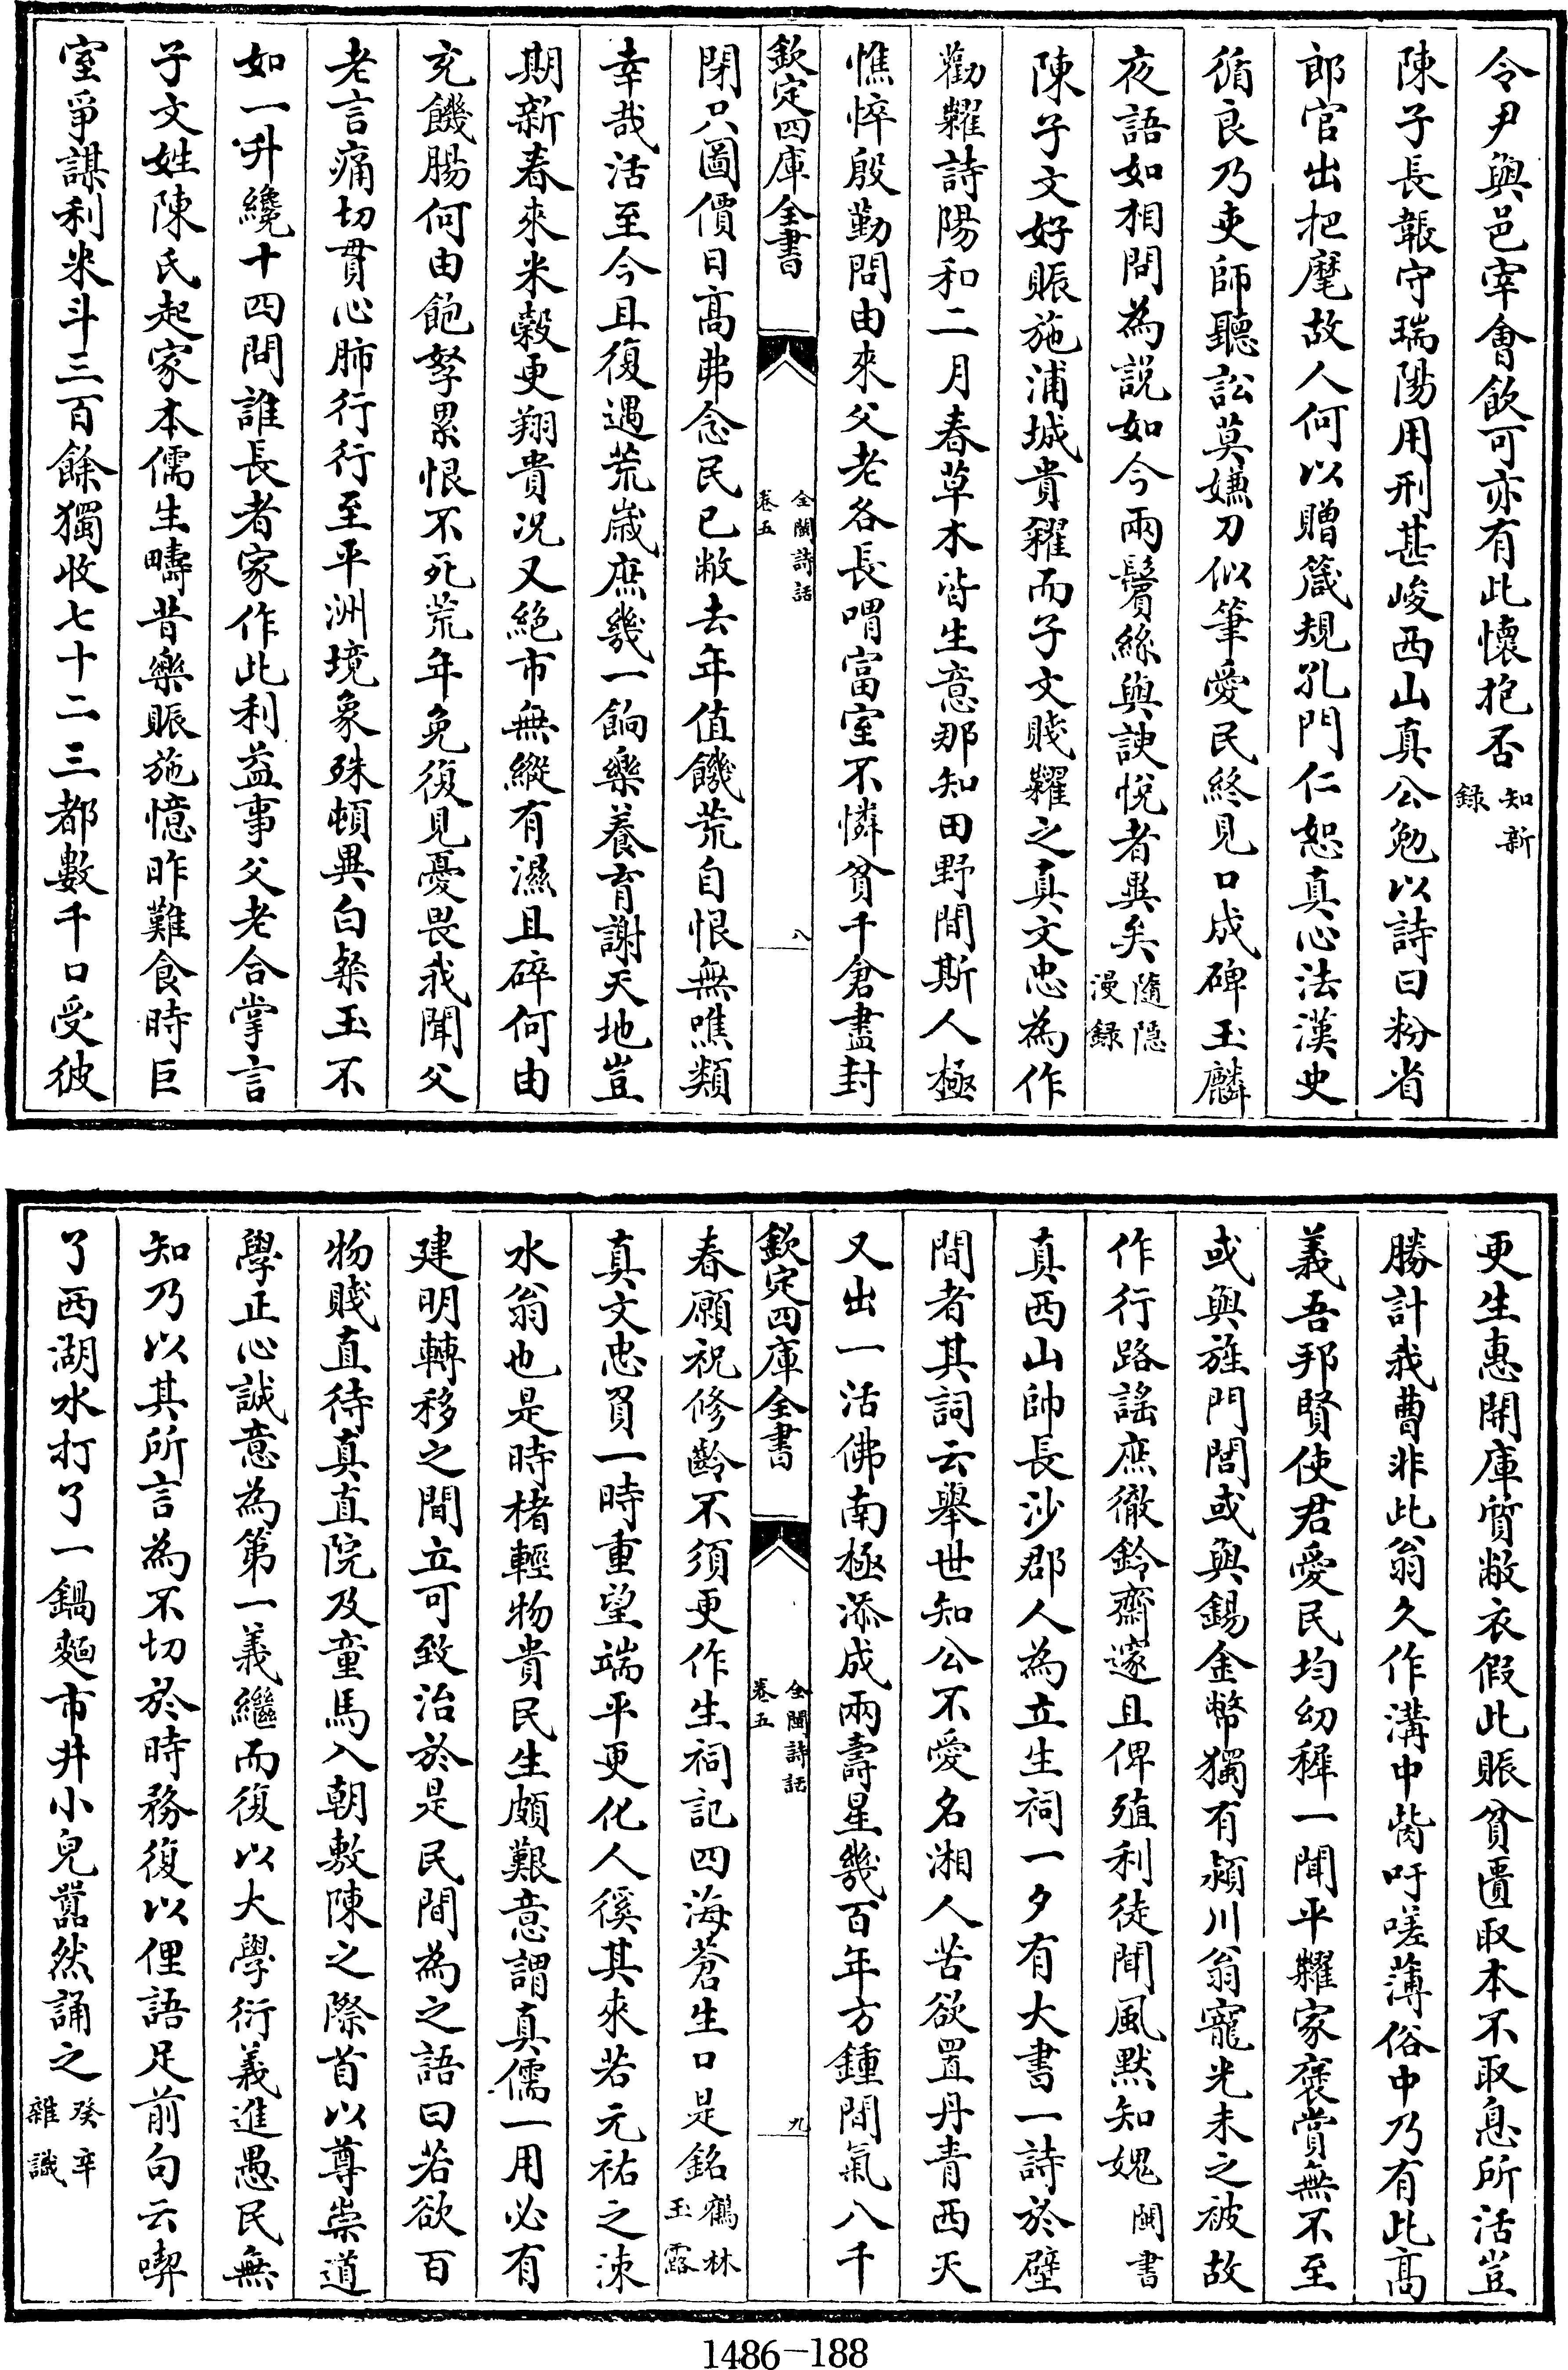 令尹與邑宰會飲可亦有此懷抱否知新
録
陳子長韔守瑞陽用刑甚峻西山真公勉以詩曰粉省
郎官出把麾故人何以贈箴規孔門仁恕真心法漢史
循良乃吏師聽訟莫嫌刀似筆愛民終見口成碑玉麟
夜語如相問為説如今兩鬢絲與諛悅者異矣隨隠
漫録
陳子文好賑施浦城貴糴而子文賤糶之真文忠為作
勸糶詩陽和二月春草木皆生意那知田野間斯人極
憔悴殷勤問由來父老各長喟富室不憐貧千倉盡封
欽定四庫全書
全閩詩話
卷五
八
閉只圖價日高弗念民已敝去年值饑荒自恨無噍類
幸哉活至今且復遇荒歲庶幾一餉樂養育謝天地豈
期新春來米穀更翔貴況又絶市無縱有濕且碎何由
充饑腸何由飽孥累恨不死荒年免復見憂畏我聞父
老言痛切貫心肺行行至平洲境象殊頓異白粲玉不
如一升纔十四問誰長者家作此利益事父老合掌言
子文姓陳氏起家本儒生疇昔樂賑施憶昨難食時巨
室爭謀利米斗三百餘獨收七十二三都數千口受彼
更生惠開庫質敝衣假此賑貧匱取本不取息所活豈
勝計我曹非此翁久作溝中胔吁嗟薄俗中乃有此髙
義吾邦賢使君愛民均幼穉一聞平糶家褒賞無不至
或與旌門閭或與錫金幣獨有潁川翁寵光未之被故
作行路謡庶徹鈴齋邃且俾殖利徒聞風黙知媿閩書
真西山帥長沙郡人為立生祠一夕有大書一詩於壁
間者其詞云舉世知公不愛名湘人苦欲置丹青西天
又出一活佛南極添成兩壽星幾百年方鍾間氣八千
欽定四庫全書
全閩詩話
卷五
九
春願祝修齡不須更作生祠記四海蒼生口是銘鶴林
玉露
真文忠負一時重望端平更化人徯其來若元祐之涑
水翁也是時楮輕物貴民生頗艱意謂真儒一用必有
建明轉移之間立可致治於是民間為之語曰若欲百
物賤直待真直院及童馬入朝敷陳之際首以尊崇道
學正心誠意為第一義繼而復以大學衍義進愚民無
知乃以其所言為不切於時務復以俚語足前句云喫
了西湖水打了一鍋麵市井小兒囂然誦之癸辛
雜識
1486-188